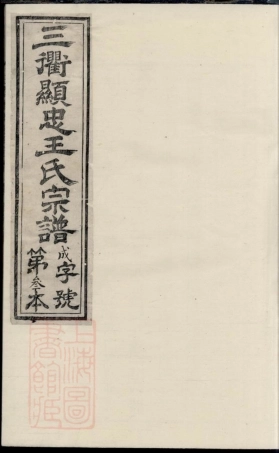 三衢顯忠王氏宗譜
成字號
第叁本
上海圖書館藏